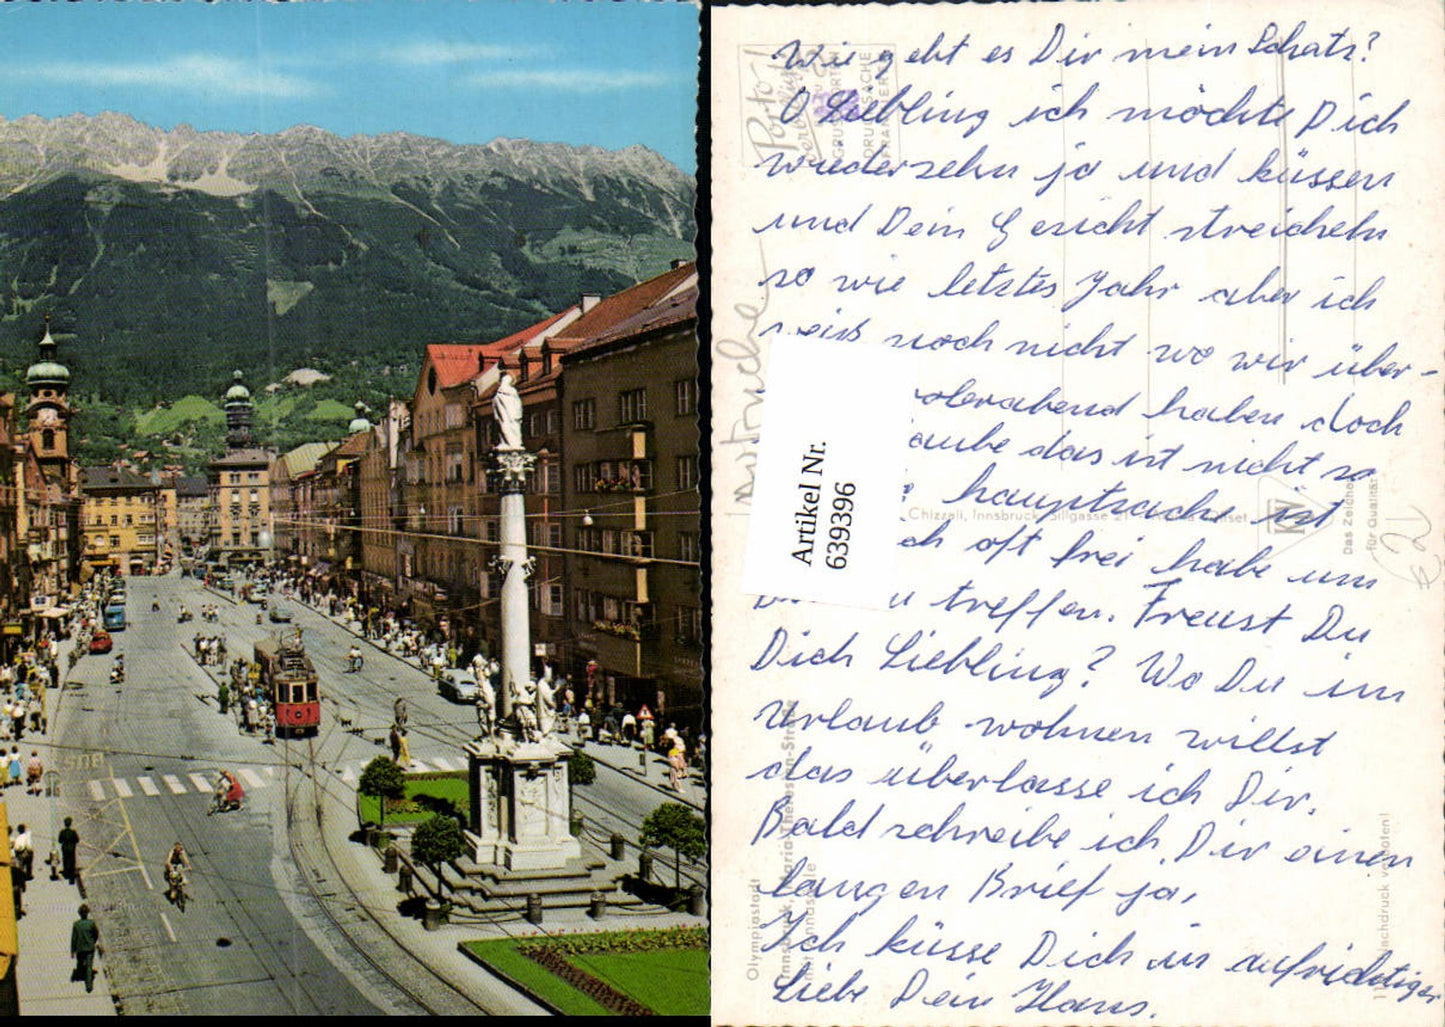 Wie geht es Dir mein Schatz?
O Liebling ich möchte Dich
wiedersehn ja und küssen
und Dein Gesicht streicheln
so wie letztes Jahr aber ich
weiß noch nicht wo wir über-
haben doch
das ist nicht so
hauptsache ist
ich oft frei habe um
treffen. Freust Du
Dich Liebling? Wo Du im
Urlaub wohnen willst
das überlasse ich Dir.
Bald schreibe ich Dir einen
langen Brief ja,
Ich küsse Dich in aufrichtiger
Liebe Dein Hans.
Artikel Nr.
639396
Porto!
DRUCKSACHE
Chizzali, Innsbruck, Sillgasse 21
Das Zeichen
für Qualität
Olympiastadt
Innsbruck, Maria-Theresien-Straße
BUS